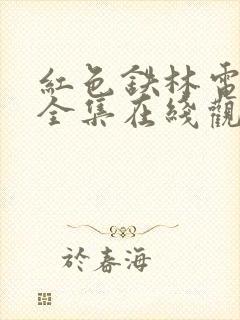 紅色鐵林電
全集在綫觀
於春海